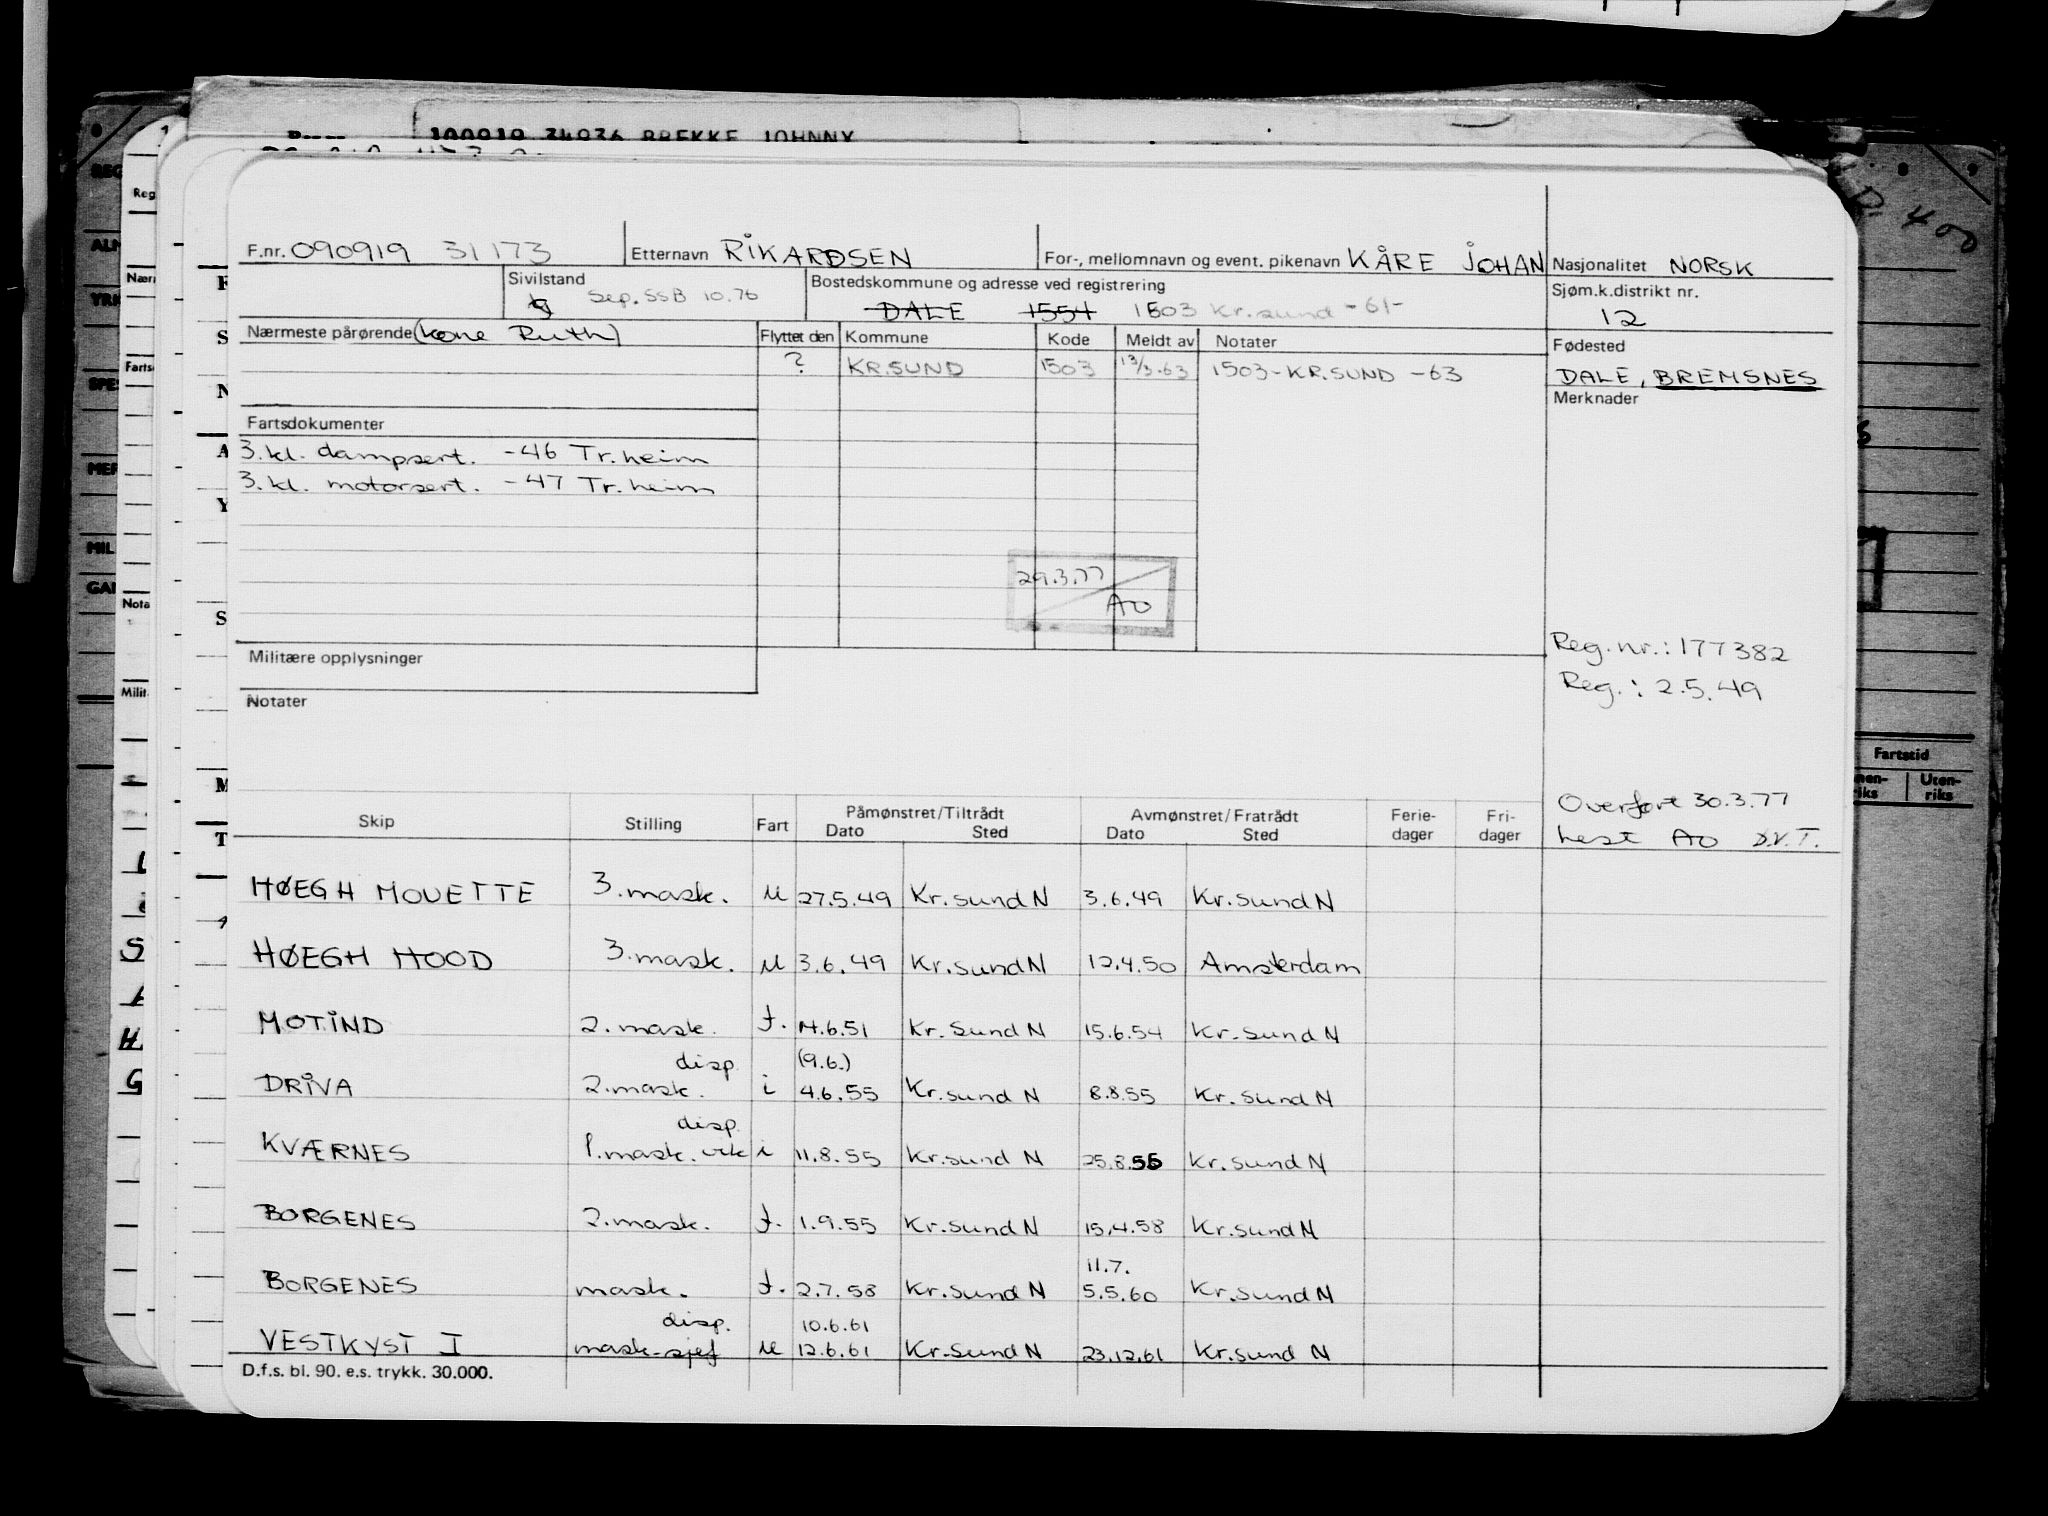 100919 34936 BREKKE JOHNNY
F.nr. 090919 31173 Etternavn RIKARDSEN For-, mellomnavn og event. pikenavn KÅRE JOHAN Nasjonalitet NORSK
Sivilstand g Sep. SSB 10.76 Bostedskommune og adresse ved registrering DALE 1554 1503 Kr.sund -61- Sjøm.k.distrikt nr. 12
Nærmeste pårørende (kone Ruth) Flyttet den Kommune Kode Meldt av Notater Fødested
? KR.SUND 1503 13/3-63 1503-KR.SUND -63 DALE, BREMSNES
Merknader
Fartsdokumenter
3.kl. dampsert. -46 Tr.heim
3.kl. motorsert. -47 Tr.heim
29.3.77
AO
Reg.nr.: 177382
Reg.: 2.5.49
Militære opplysninger
Notater
Overført 30.3.77
hest AO D.V.T.
Skip Stilling Fart Påmønstret/Tiltrådt Avmønstret/Fratrådt Ferie- Fri-
Dato Sted Dato Sted dager dager
HØEGH MOUETTE 3.mask. u 27.5.49 Kr.sund N 3.6.49 Kr.sund N
HØEGH HOOD 3.mask. u 3.6.49 Kr.sund N 12.4.50 Amsterdam
MOTIND 2.mask. f. 14.6.51 Kr.sund N 15.6.54 Kr.sund N
disp. (9.6.)
DRIVA 2.mask. i 4.6.55 Kr.sund N 8.8.55 Kr.sund N
disp.
KVÆRNES 1.mask. vik i 11.8.55 Kr.sund N 25.8.55 Kr.sund N
BORGENES 2.mask. f. 1.9.55 Kr.sund N 15.4.58 Kr.sund N
11.7.
BORGENES mask. f. 2.7.58 Kr.sund N 5.5.60 Kr.sund N
disp. 10.6.61
VESTKYST I mask.sjef u 12.6.61 Kr.sund N 23.12.61 Kr.sund N
D.f.s. bl. 90. e.s. trykk. 30.000.
Fartstid
Uten-
riks